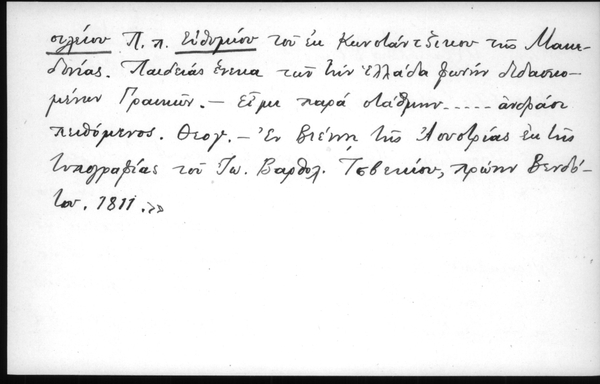 σιλείου Π. π. Εὐθυμίου τοῦ ἐκ Κωνστάντζικου τῆς Μακε-
δονίας. Παιδείας ἕνεκα τῶν τὴν Ἑλλάδα φωνὴν διδασκο-
μένων Γραικῶν. — Εἶμι παρὰ στάθμην ..... ἀνδράσι
πειθόμενος. Θεογ. — Ἐν Βιέννῃ τῆς Ἀουστρίας ἐκ τῆς
τυπογραφίας τοῦ Ἰω. Βαρθολ. Τσβεκίου, πρώην Βενδό-
του. 1811.»